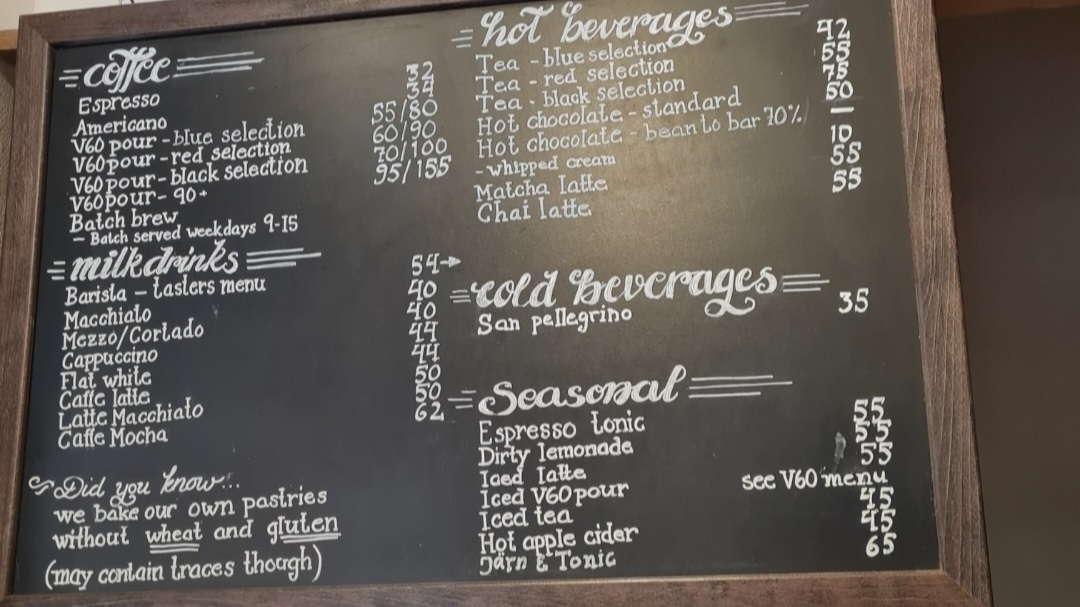 coffee
Espresso 32
Americano 34
V60 pour - blue selection 55/80
V60 pour - red selection 60/90
V60 pour - black selection 70/100
V60 pour - 90+ 95/155
Batch brew
- Batch served weekdays 9-15
milkdrinks
Barista - tasters menu 54→
Macchiato 40
Mezzo/Cortado 40
Cappuccino 44
Flat white 44
Caffe latte 50
Latte Macchiato 50
Caffe Mocha 62
Did you know...
we bake our own pastries
without wheat and gluten
(may contain traces though)
hot beverages
Tea - blue selection 42
Tea - red selection 55
Tea - black selection 75
Hot chocolate - standard 50
Hot chocolate - bean to bar 70% —
- whipped cream 10
Matcha latte 55
Chai latte 55
cold beverages
San pellegrino 35
Seasonal
Espresso tonic 55
Dirty lemonade 55
Iced latte 55
Iced V60 pour see V60 menu
Iced tea 45
Hot apple cider 45
Järn & Tonic 65